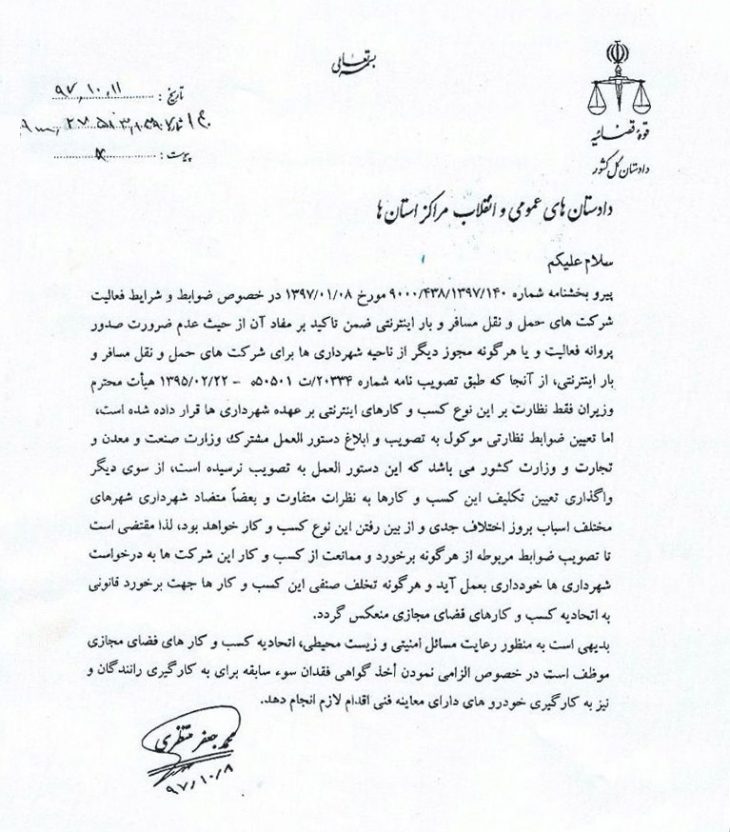 بسمه تعالی
قوه قضائیه
دادستان کل کشور
تاریخ : ۹۷,۱۰,۱۱
شماره :
پیوست :
دادستان های عمومی و انقلاب مراکز استان ها
سلام علیکم
پیرو بخشنامه شماره ۹۰۰۰/۴۳۸/۱۳۹۷/۱۴۰ مورخ ۱۳۹۷/۰۱/۰۸ در خصوص ضوابط و شرایط فعالیت
شرکت های حمل و نقل مسافر و بار اینترنتی ضمن تاکید بر مفاد آن از حیث عدم ضرورت صدور
پروانه فعالیت و یا هرگونه مجوز دیگر از ناحیه شهرداری ها برای شرکت های حمل و نقل مسافر و
بار اینترنتی، از آنجا که طبق تصویب نامه شماره ۲۰۳۳۴/ت ۵۰۵۰۱ه - ۱۳۹۵/۰۲/۲۲ هیأت محترم
وزیران فقط نظارت بر این نوع کسب و کارهای اینترنتی بر عهده شهرداری ها قرار داده شده است،
اما تعیین ضوابط نظارتی موکول به تصویب و ابلاغ دستور العمل مشترک وزارت صنعت و معدن و
تجارت و وزارت کشور می باشد که این دستور العمل به تصویب نرسیده است، از سوی دیگر
واگذاری تعیین تکلیف این کسب و کارها به نظرات متفاوت و بعضاً متضاد شهرداری شهرهای
مختلف اسباب بروز اختلاف جدی و از بین رفتن این نوع کسب و کار خواهد بود، لذا مقتضی است
تا تصویب ضوابط مربوطه از هرگونه برخورد و ممانعت از کسب و کار این شرکت ها به درخواست
شهرداری ها خودداری بعمل آید و هرگونه تخلف صنفی این کسب و کار ها جهت برخورد قانونی
به اتحادیه کسب و کارهای فضای مجازی منعکس گردد.
بدیهی است به منظور رعایت مسائل امنیتی و زیست محیطی، اتحادیه کسب و کار های فضای مجازی
موظف است در خصوص الزامی نمودن أخذ گواهی فقدان سوء سابقه برای به کارگیری رانندگان و
نیز به کارگیری خودرو های دارای معاینه فنی اقدام لازم انجام دهد.
محمد جعفر منتظری
۹۷/۱۰/۸